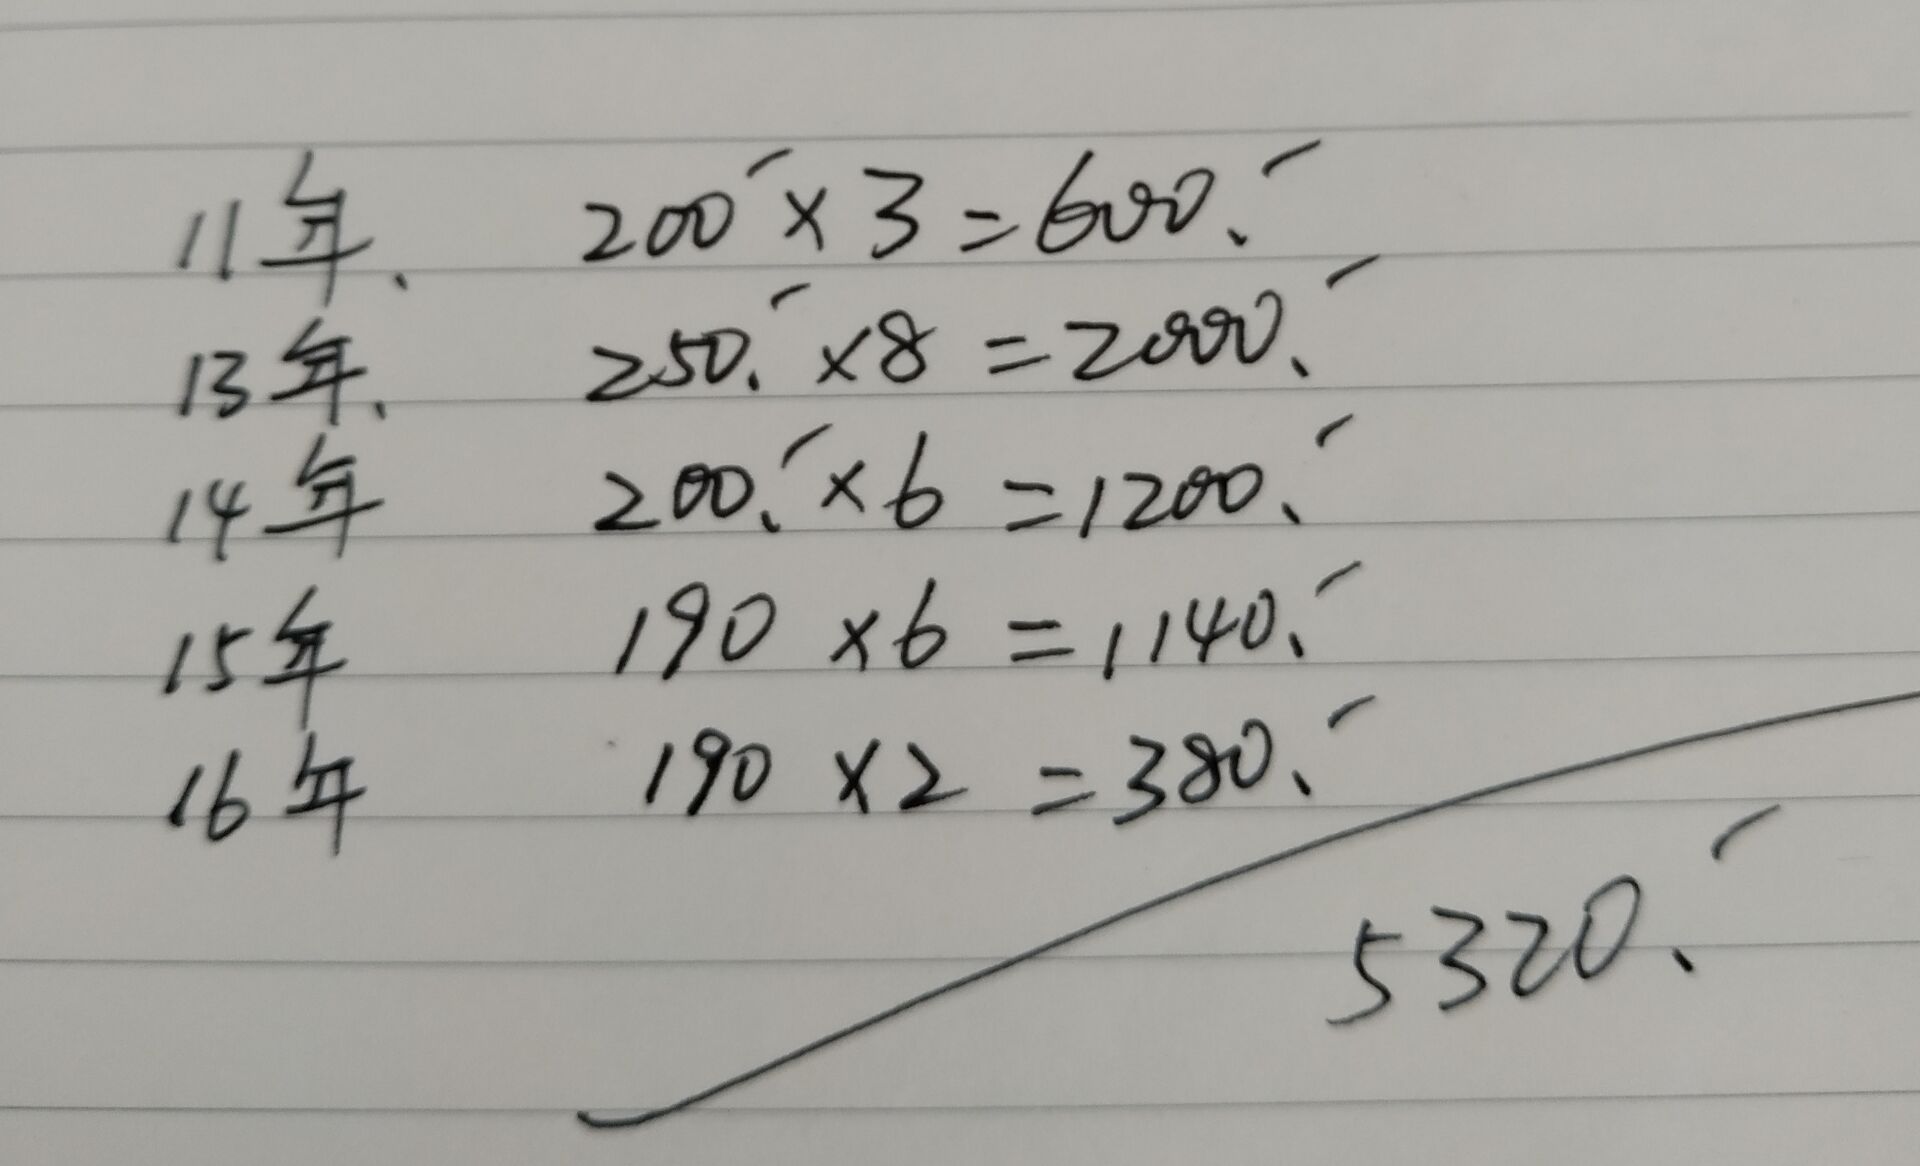 11年、 200×3=600.
13年、 250.×8=2000.
14年 200.×6=1200.
15年 190×6=1140.
16年 190×2=380.
5320.